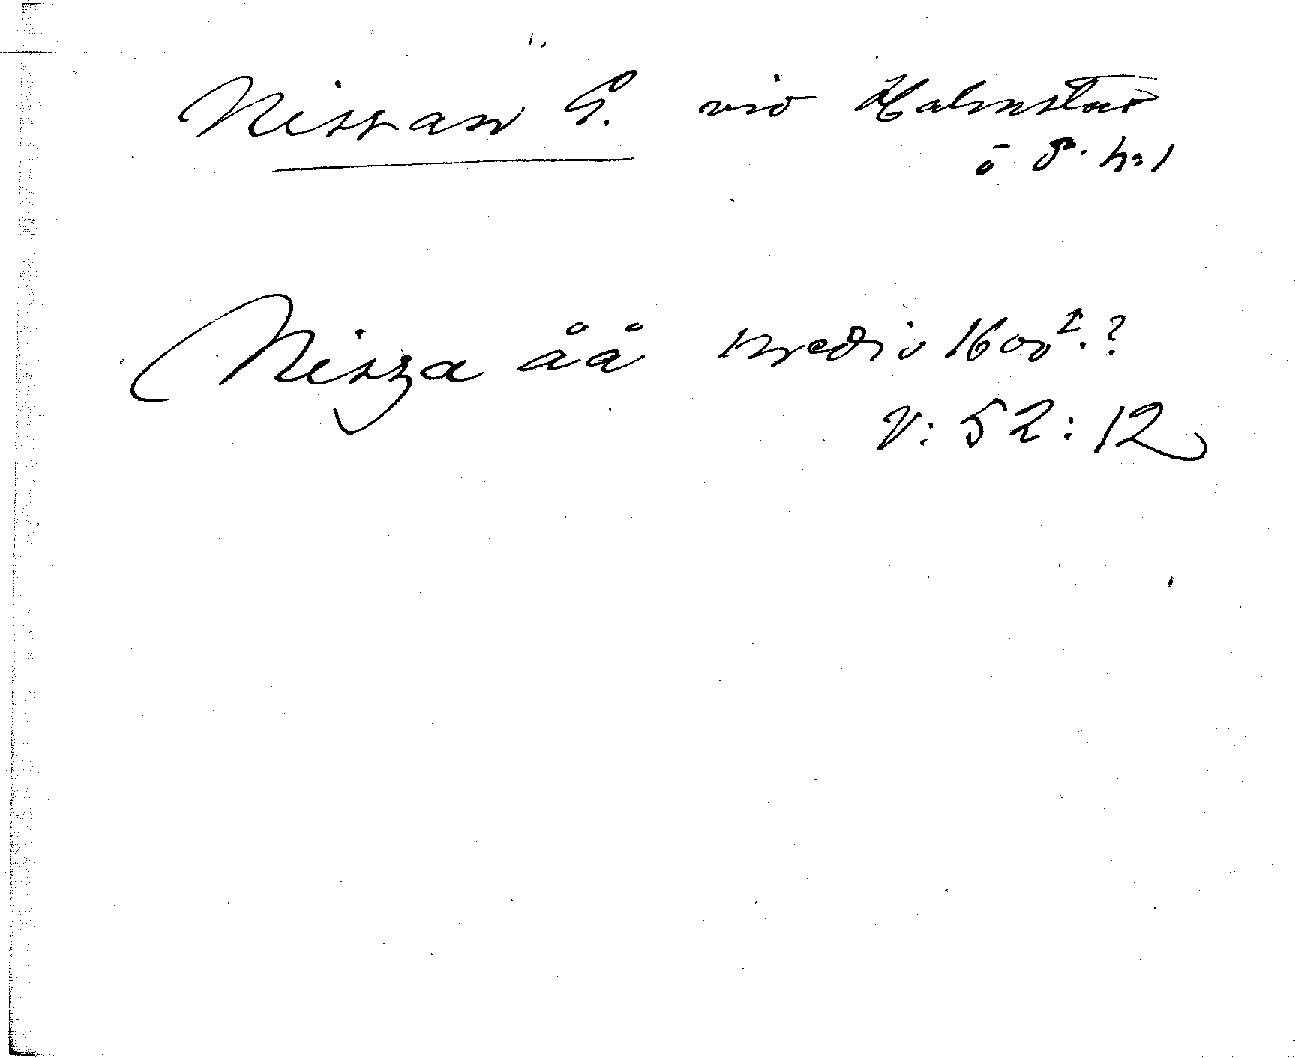 Nissan G. vid Halmstad
Nissa åå medio 1600 t.?
V: 52: 12